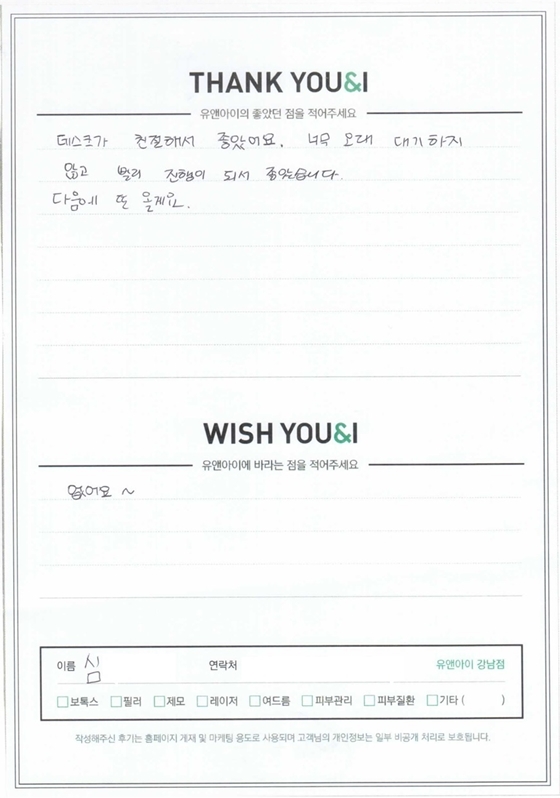 THANK YOU&I
유앤아이의 좋았던 점을 적어주세요
데스크가 친절해서 좋았어요. 너무 오래 대기하지
않고 빨리 진행이 되서 좋았습니다.
다음에 또 올게요.
WISH YOU&I
유앤아이에 바라는 점을 적어주세요
없어요 ~
이름 심 연락처 유앤아이 강남점
보톡스 필러 제모 레이저 여드름 피부관리 피부질환 기타 ( )
작성해주신 후기는 홈페이지 게재 및 마케팅 용도로 사용되며 고객님의 개인정보는 일부 비공개 처리로 보호됩니다.